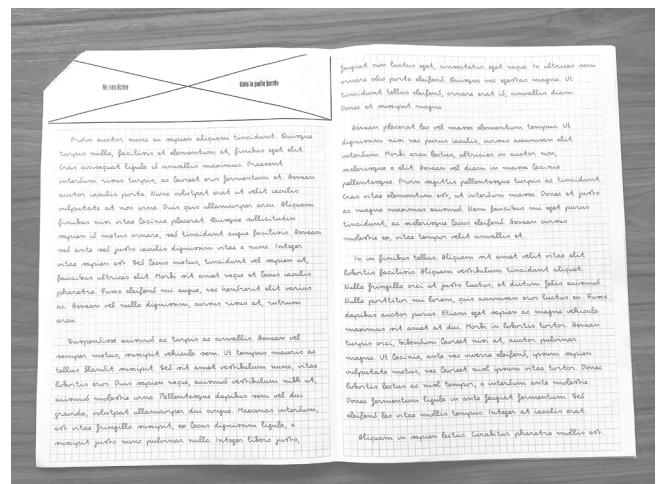 Ne rien écrire
dans la partie barrée
Proin auctor nunc eu sapien aliquam tincidunt. Quisque
turpis nulla, facilisis et elementum et, finibus eget elit.
Cras consequat ligula id convallis maximus. Praesent
interdum risus turpis, ac laoreet eros fermentum et. Aenean
auctor iaculis porta. Nunc volutpat erat ut velit iaculis
vulputate at non urna. Duis quis ullamcorper arcu. Aliquam
finibus nisi vitae lacinia placerat. Quisque sollicitudin
sapien id metus ornare, sed tincidunt augue facilisis. Aenean
sed ante sed justo iaculis dignissim vitae a nunc. Integer
vitae sapien est. Sed lacus metus, tincidunt vel sapien ut,
faucibus ultrices elit. Morbi sit amet neque et lacus iaculis
pharetra. Fusce eleifend mi augue, nec hendrerit elit varius
ac. Aenean vel nulla dignissim, cursus risus at, rutrum
arcu.
Suspendisse euismod ac turpis ac convallis. Aenean vel
semper metus, suscipit vehicula sem. Ut tempus mauris ac
tellus blandit suscipit. Sed sit amet vestibulum nunc, vitae
lobortis eros. Duis sapien neque, euismod vestibulum nibh ut,
euismod molestie urna. Pellentesque dapibus sem vel dui
gravida, volutpat ullamcorper dui congue. Maecenas interdum,
est vitae fringilla suscipit, ex lacus dignissim ligula, a
suscipit justo nunc pulvinar nulla. Integer libero justo,
feugiat non luctus eget, consectetur eget neque. In ultrices sem
ornare odio porta eleifend. Quisque nec egestas magna. Ut
tincidunt tellus eleifend, ornare erat id, convallis diam.
Donec et suscipit magna.
Aenean placerat leo vel massa elementum tempus. Ut
dignissim nisi nec purus iaculis, cursus accumsan elit
interdum. Morbi arcu lectus, ultricies in auctor non,
scelerisque a elit. Aenean vel diam in massa lacinia
pellentesque. Proin sagittis pellentesque turpis ac tincidunt.
Cras vitae elementum est, ut interdum massa. Donec et justo
ac magna maximus euismod. Nam faucibus mi eget purus
tincidunt, ac scelerisque lacus eleifend. Aenean cursus
molestie ex, vitae tempor velit convallis et.
In in finibus tellus. Aliquam sit amet velit vitae elit
lobortis facilisis. Aliquam vestibulum tincidunt aliquet.
Nulla fringilla orci ut justo luctus, et dictum felis euismod.
Nulla porttitor mi lorem, quis accumsan eros luctus eu. Fusce
dapibus auctor purus. Etiam eget sapien ac magna vehicula
maximus sit amet at dui. Morbi in lobortis tortor. Aenean
turpis orci, bibendum laoreet nisi at, auctor pulvinar
magna. Ut lacinia, ante nec viverra eleifend, ipsum sapien
vulputate metus, nec laoreet nisl ipsum vitae tortor. Donec
lobortis lectus ac nisl tempor, a interdum ante molestie.
Donec fermentum ligula in ante feugiat fermentum. Sed
eleifend leo vitae mollis tempus. Integer at iaculis erat.
Aliquam in sapien lectus. Curabitur pharetra mollis est.